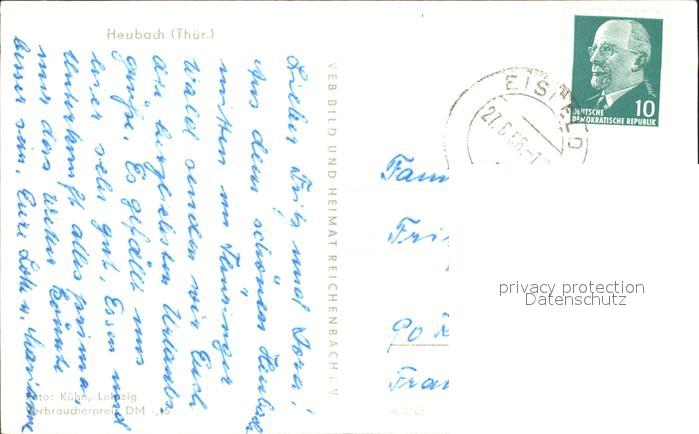 Heubach (Thür.)
Lieber Fritz und Dora!
Aus dem schönen Heubach
mitten im Thüringer
Wald senden wir Euch
die herzlichsten Urlaubs
grüße. Es gefällt uns
hier sehr gut, Essen und
Unterkunft alles prima,
nur das Wetter könnte
besser sein. Eure Lotte u. Marianne
Foto: Kühn, Leipzig
Verbraucherpreis DM
VEB BILD UND HEIMAT REICHENBACH i. V.
EISFELD
27.6.66.-1
DEUTSCHE
DEMOKRATISCHE REPUBLIK
10
Fam
Fri
90
Fran
privacy protection
Datenschutz